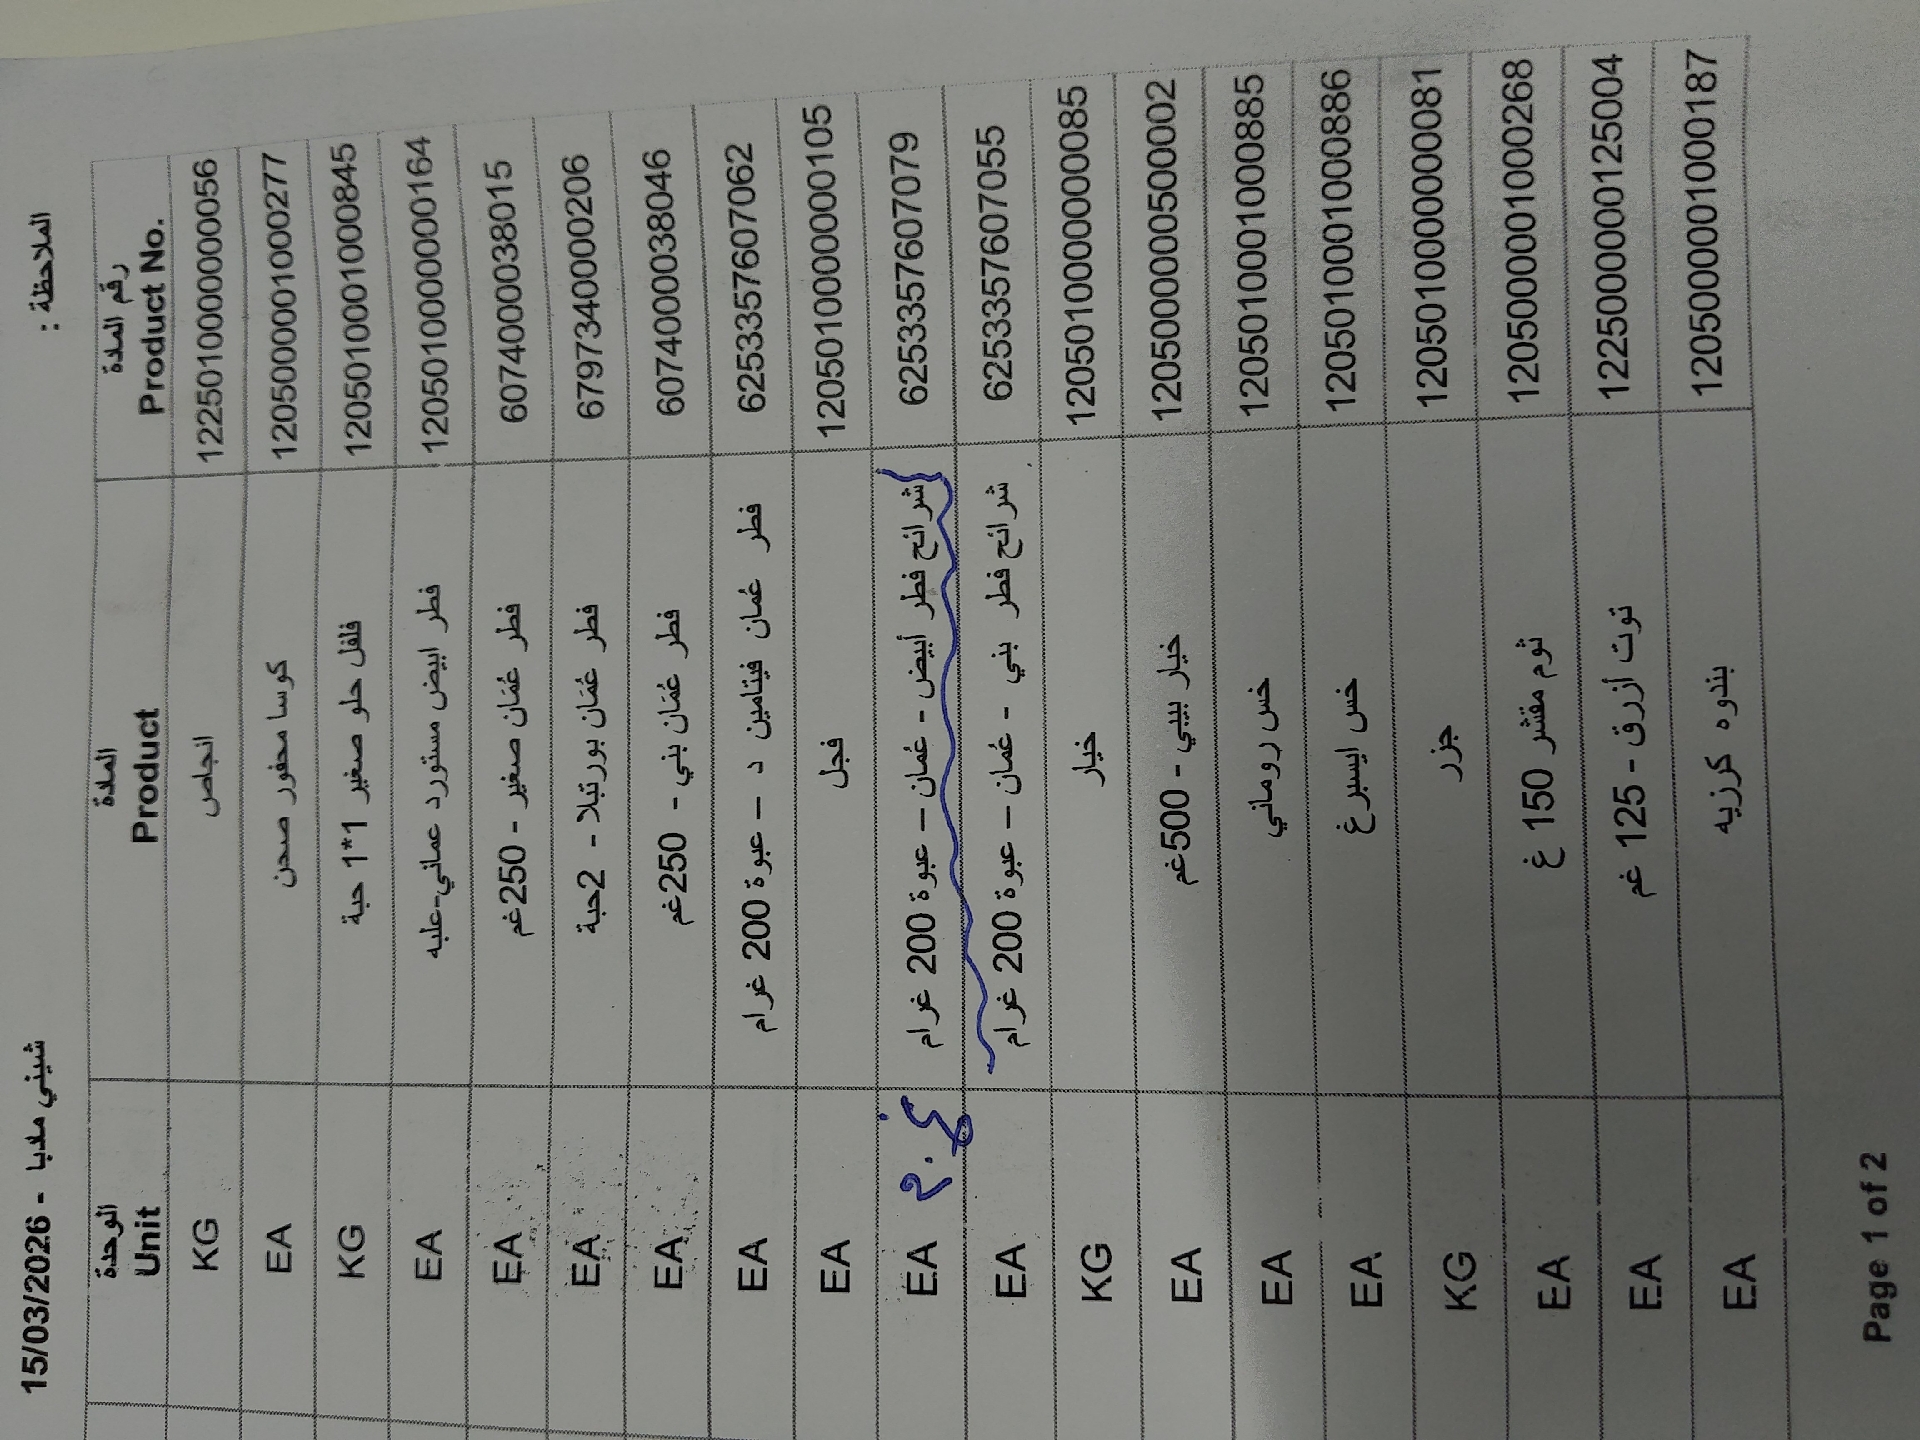 الملاحظة :
شيني ملابا - 15/03/2026
رقم المادة المادة الوحدة
Product No. Product Unit
1225010000000056 انجاص KG
1205000001000277 كوسا محفور صحن EA
1205010001000845 فلفل حلو صغير 1*1 حبة KG
1205010000000164 فطر ابيض مستورد عماني-علبه EA
6074000038015 فطر عُمَان صغير - 250غم EA
6797340000206 فطر عُمَان بورتبلا - 2حبة EA
6074000038046 فطر عُمَان بني - 250غم EA
6253357607062 فطر عُمان فيتامين د – عبوة 200 غرام EA
1205010000000105 فجل EA
6253357607079 شرائح فطر أبيض - عُمان – عبوة 200 غرام EA
6253357607055 شرائح فطر بني - عُمان – عبوة 200 غرام EA
1205010000000085 خيار KG
1205000000500002 خيار بيبي - 500غم EA
1205010001000885 خس روماني EA
1205010001000886 خس ايسبرغ EA
1205010000000081 جزر KG
1205000001000268 ثوم مقشر 150 غ EA
1225000000125004 توت أزرق - 125 غم EA
1205000001000187 بندوه كرزيه EA
Page 1 of 2